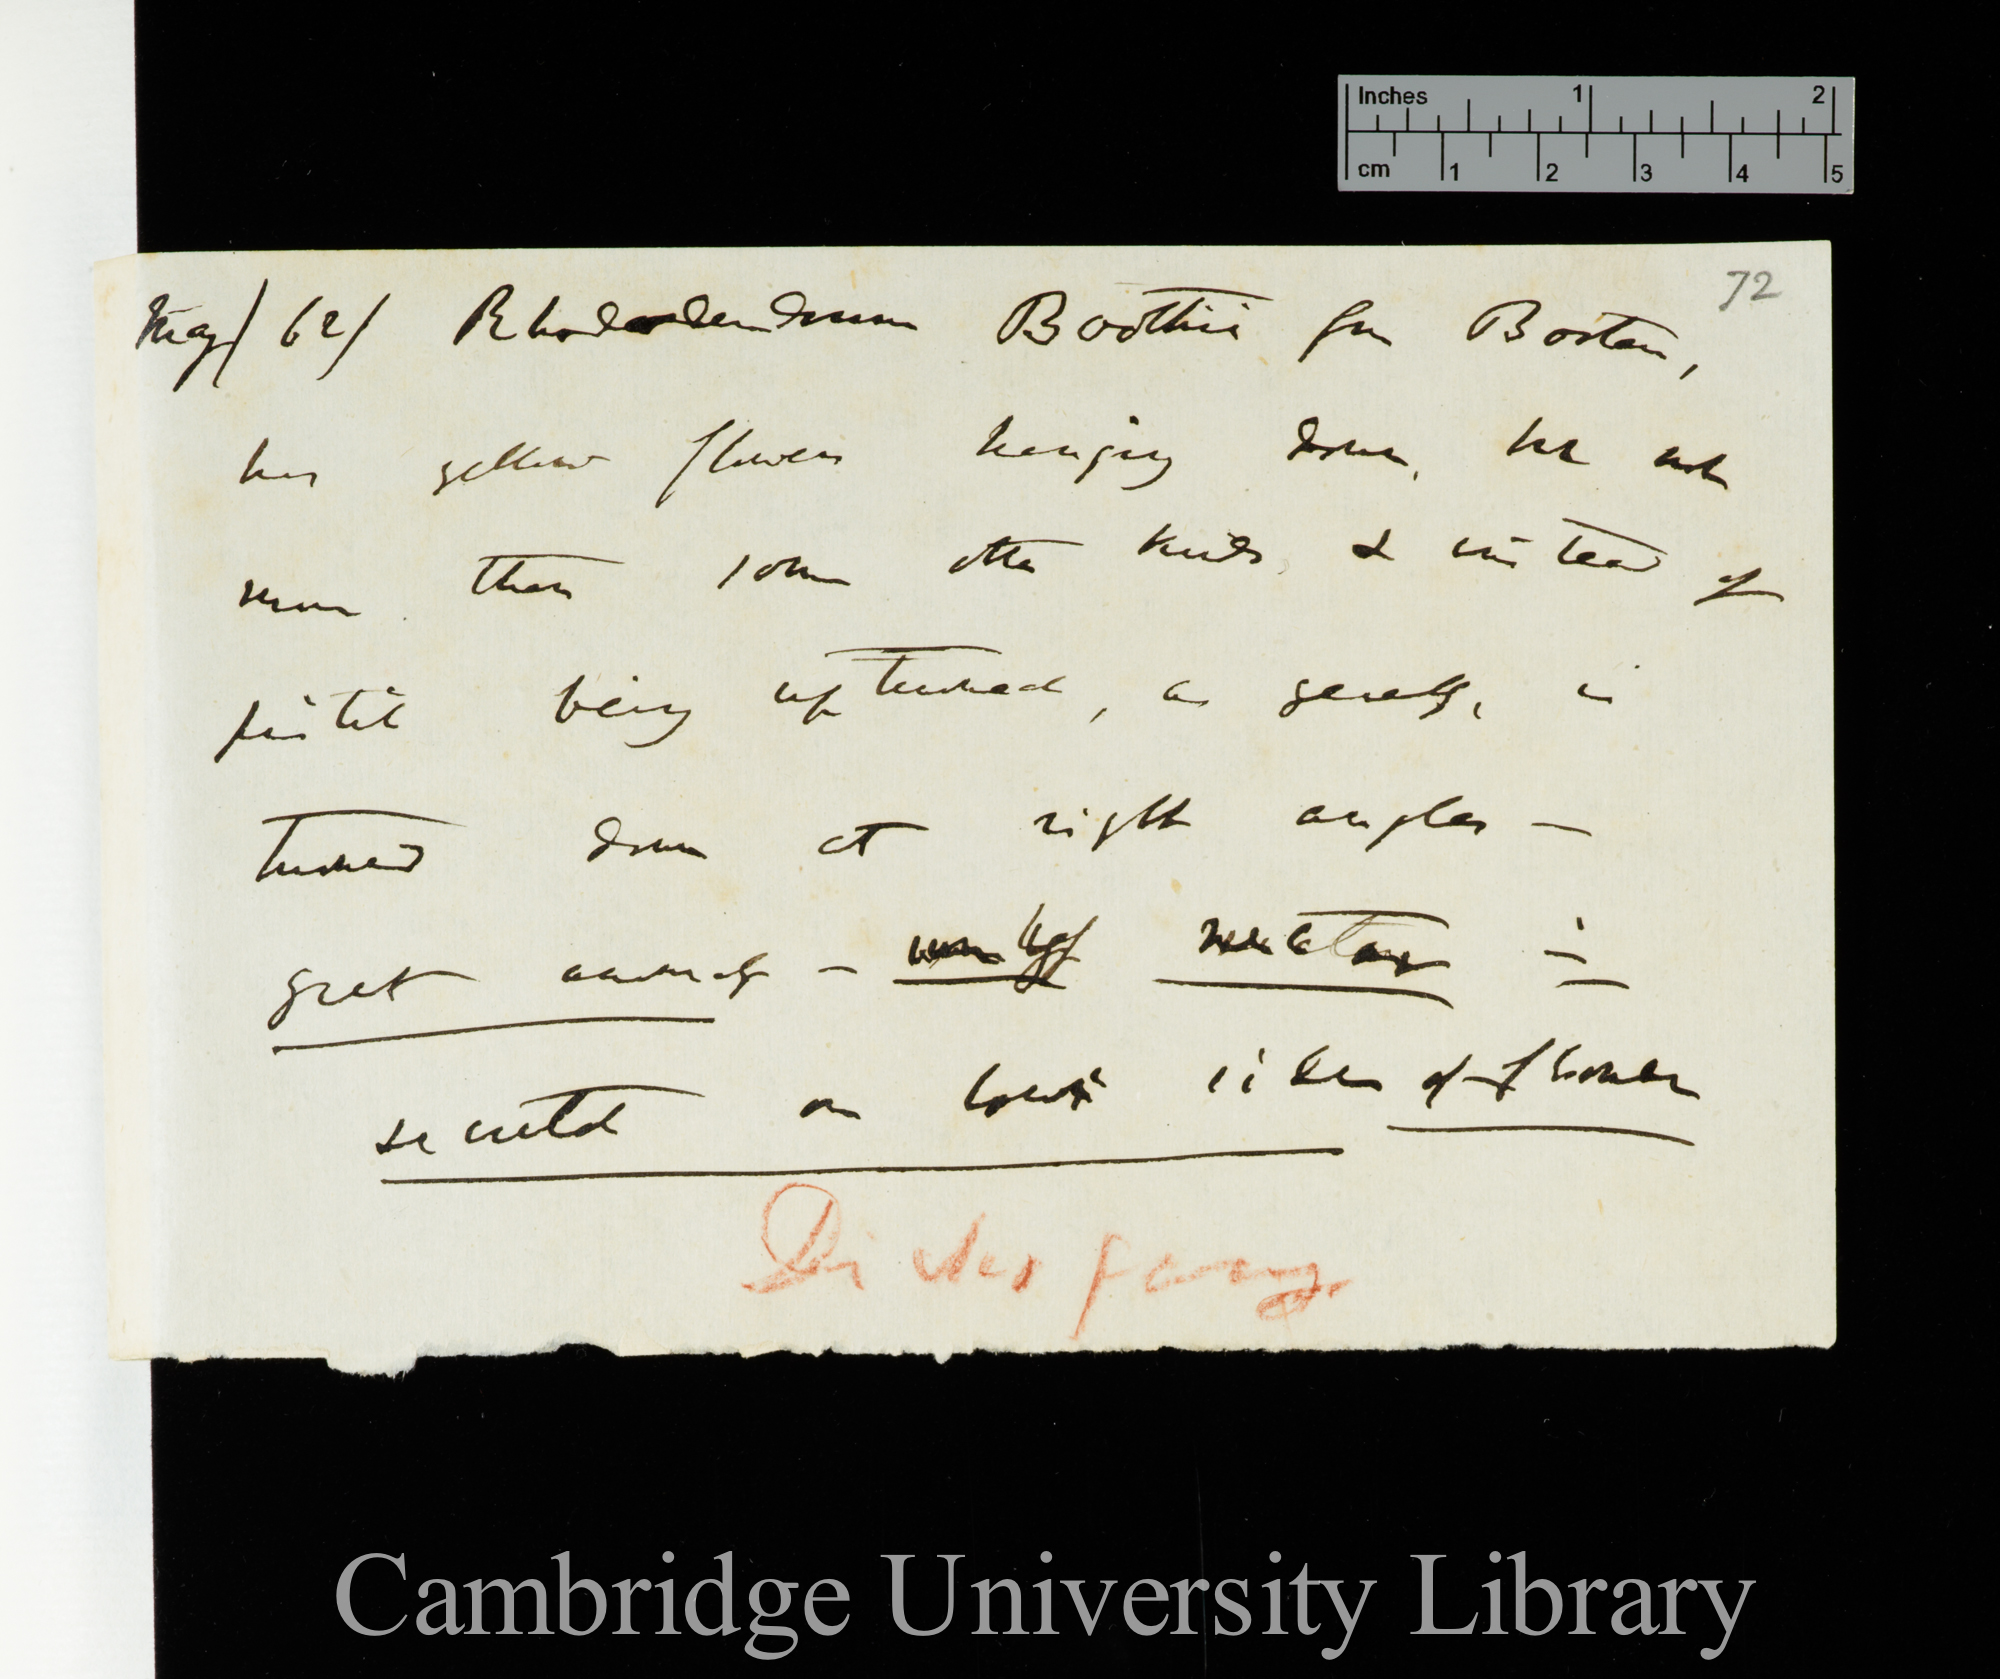 Inches 1 2
cm 1 2 3 4 5
72
May/62/ Rhododendron Boothii from Borton,
has yellow flowers hanging down, but not
more than some other kinds, & instead of
pistil being upturned, as generally, is
turned down at right angles —
great anomaly — nectar is
secreted on lower sides of flower
Dichogamy
Cambridge University Library